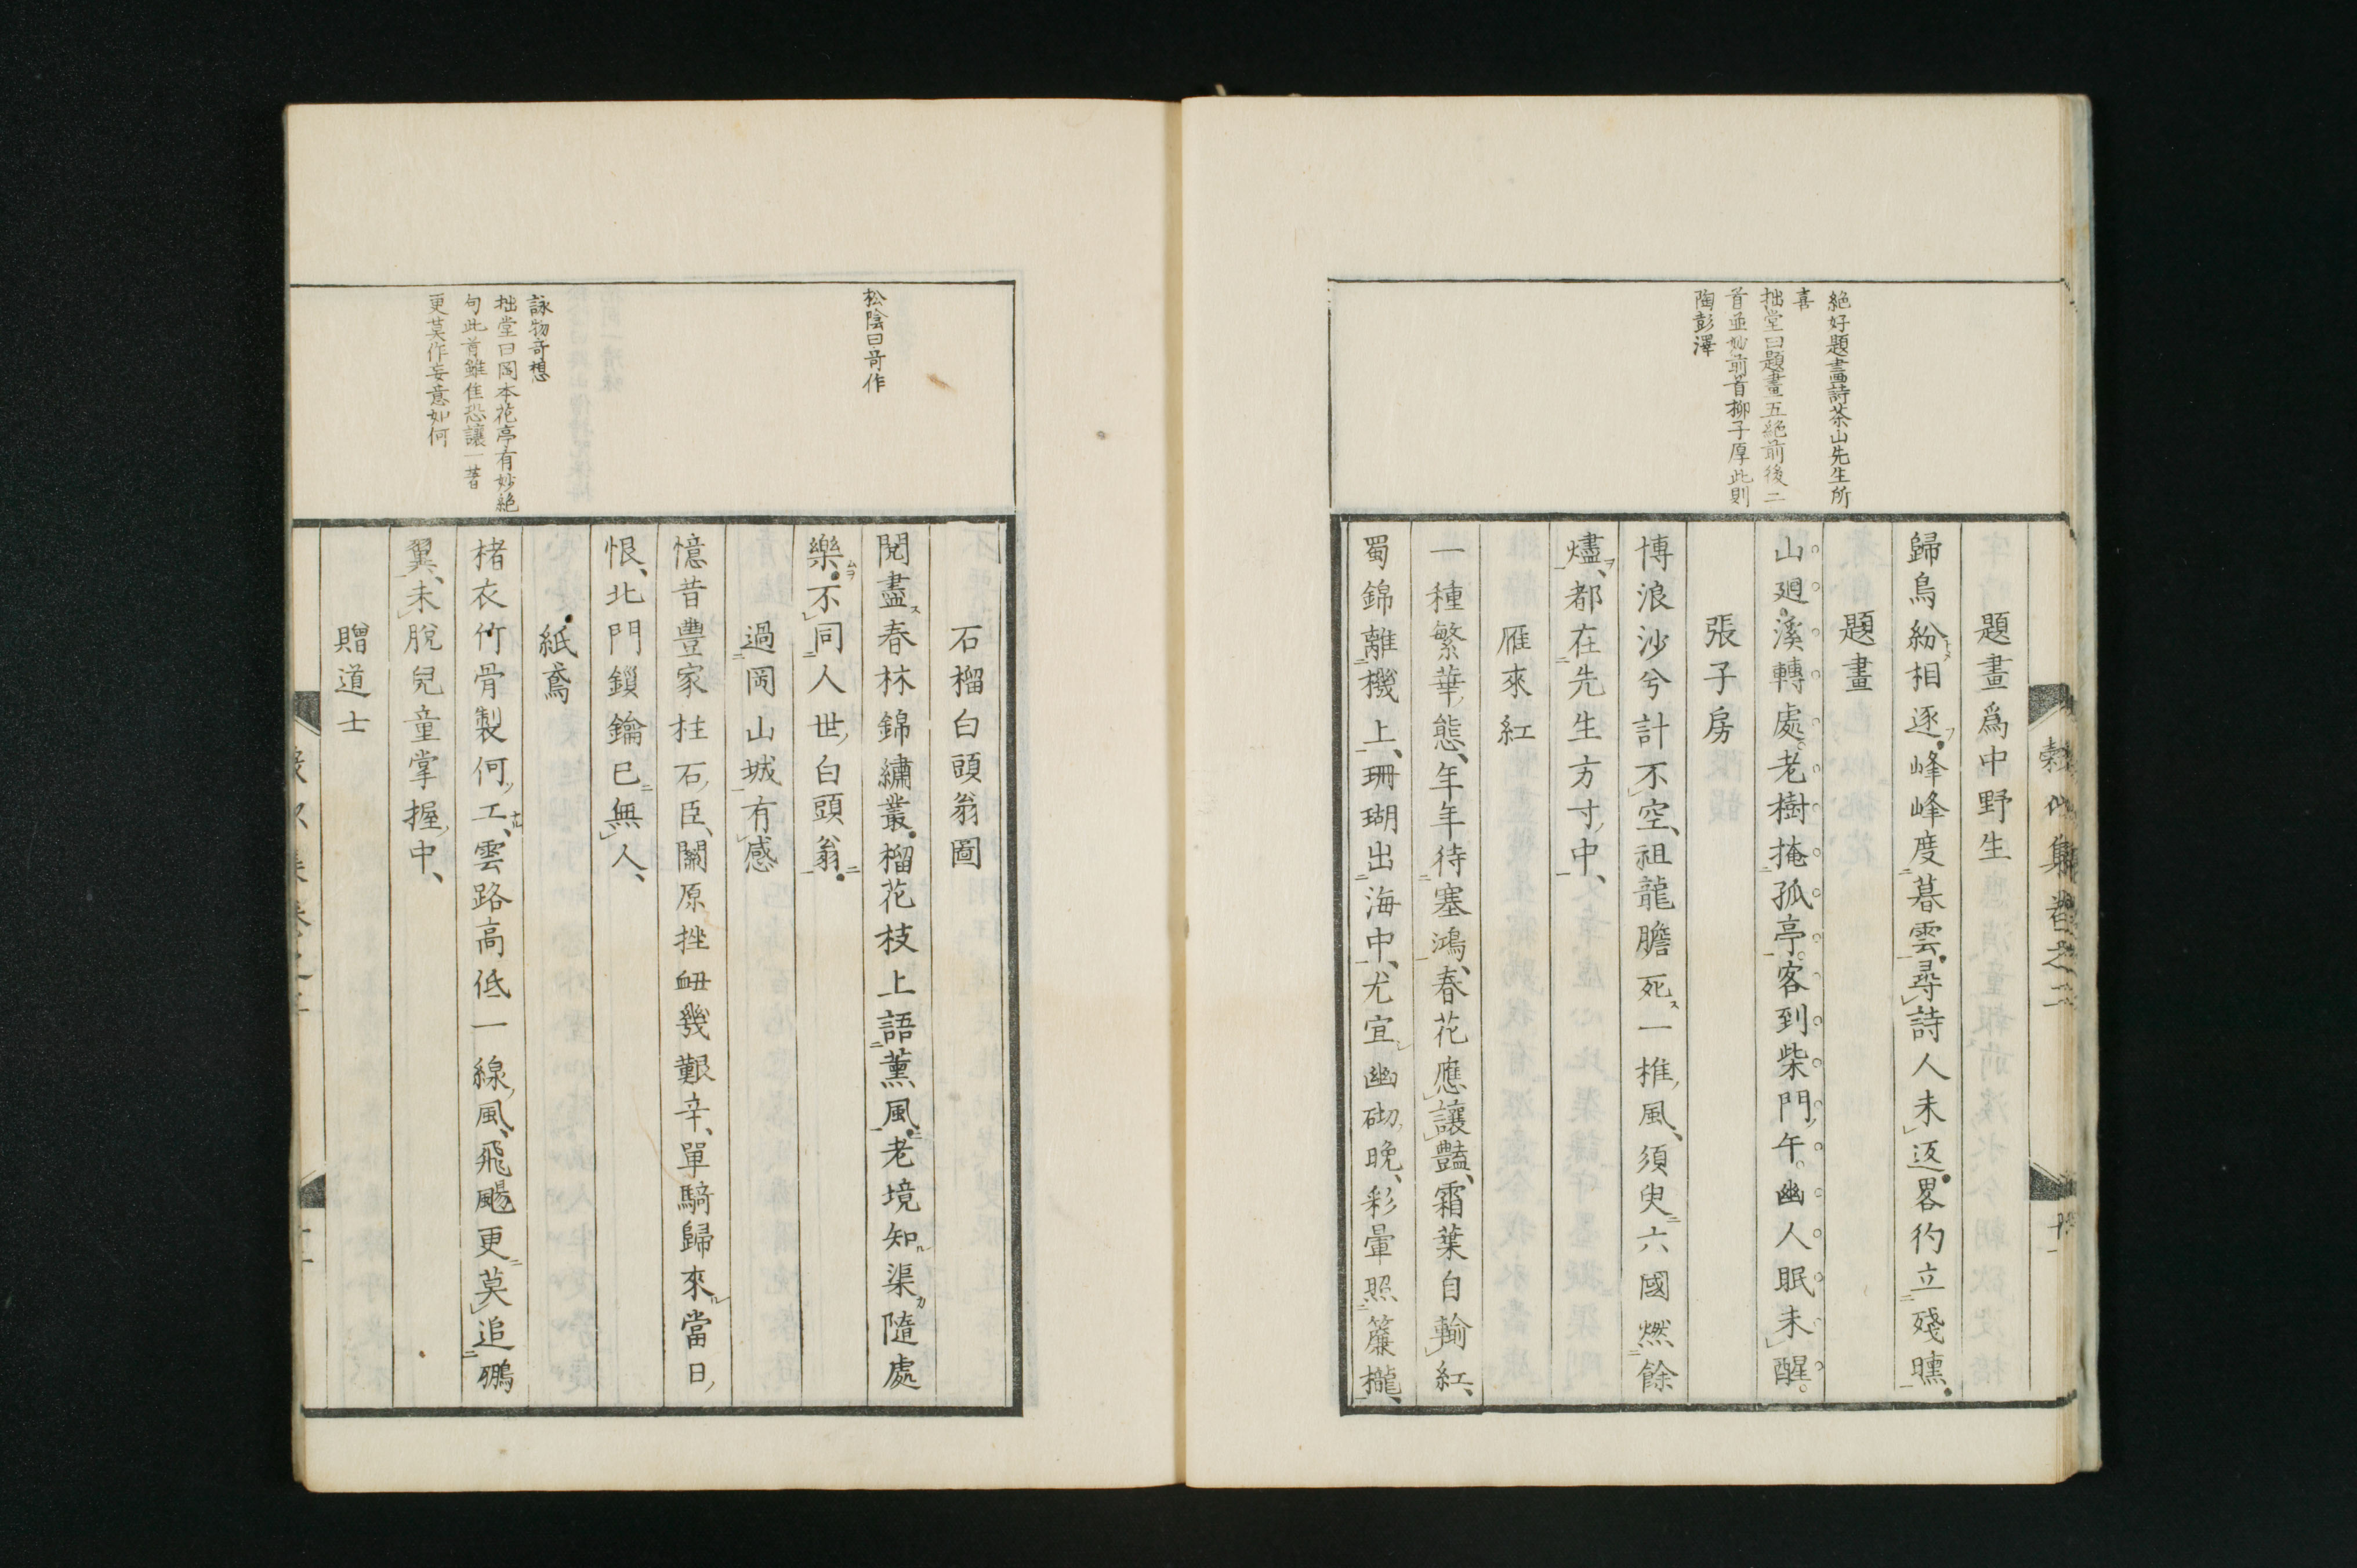 絶好題畫詩茶山先生所
喜
拙堂曰題畫五絶前後二
首並妙前首柳子厚此則
陶彭澤
題畫爲中野生
歸鳥紛相逐峰峰度暮雲尋詩人未返畧彴立殘曛
題畫
山廻溪轉處老樹掩孤亭客到柴門午幽人眠未醒
張子房
博浪沙兮計不空祖龍膽死一椎風須臾六國燃餘
燼都在先生方寸中
雁來紅
一種繁華態年年待塞鴻春花應讓豔霜葉自輸紅
蜀錦離機上珊瑚出海中尤宜幽砌晩彩暈照簾櫳
松陰曰奇作
詠物奇想
拙堂曰岡本花亭有妙絶
句此首雖佳恐讓一著
更莫作妄意如何
石榴白頭翁圖
閱盡春林錦繡叢榴花枝上語薰風老境知渠隨處
樂不同人世白頭翁
過岡山城有感
憶昔豊家柱石臣關原挫衄幾艱辛單騎歸來當日
恨北門鎖鑰已無人
紙鳶
楮衣竹骨製何工雲路高低一線風飛颺更莫追鵬
翼未脫兒童掌握中
贈道士